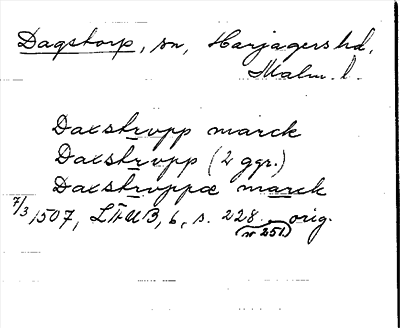 Dagstorp, sn, Harjagers hd,
Malm. l.
Daxstrvpp marck
Daxstrvpp (2 ggr.)
Daxstrvppæ marck
7/3 1507, LÄUB, 6, s. 228. orig.
(nr 251)